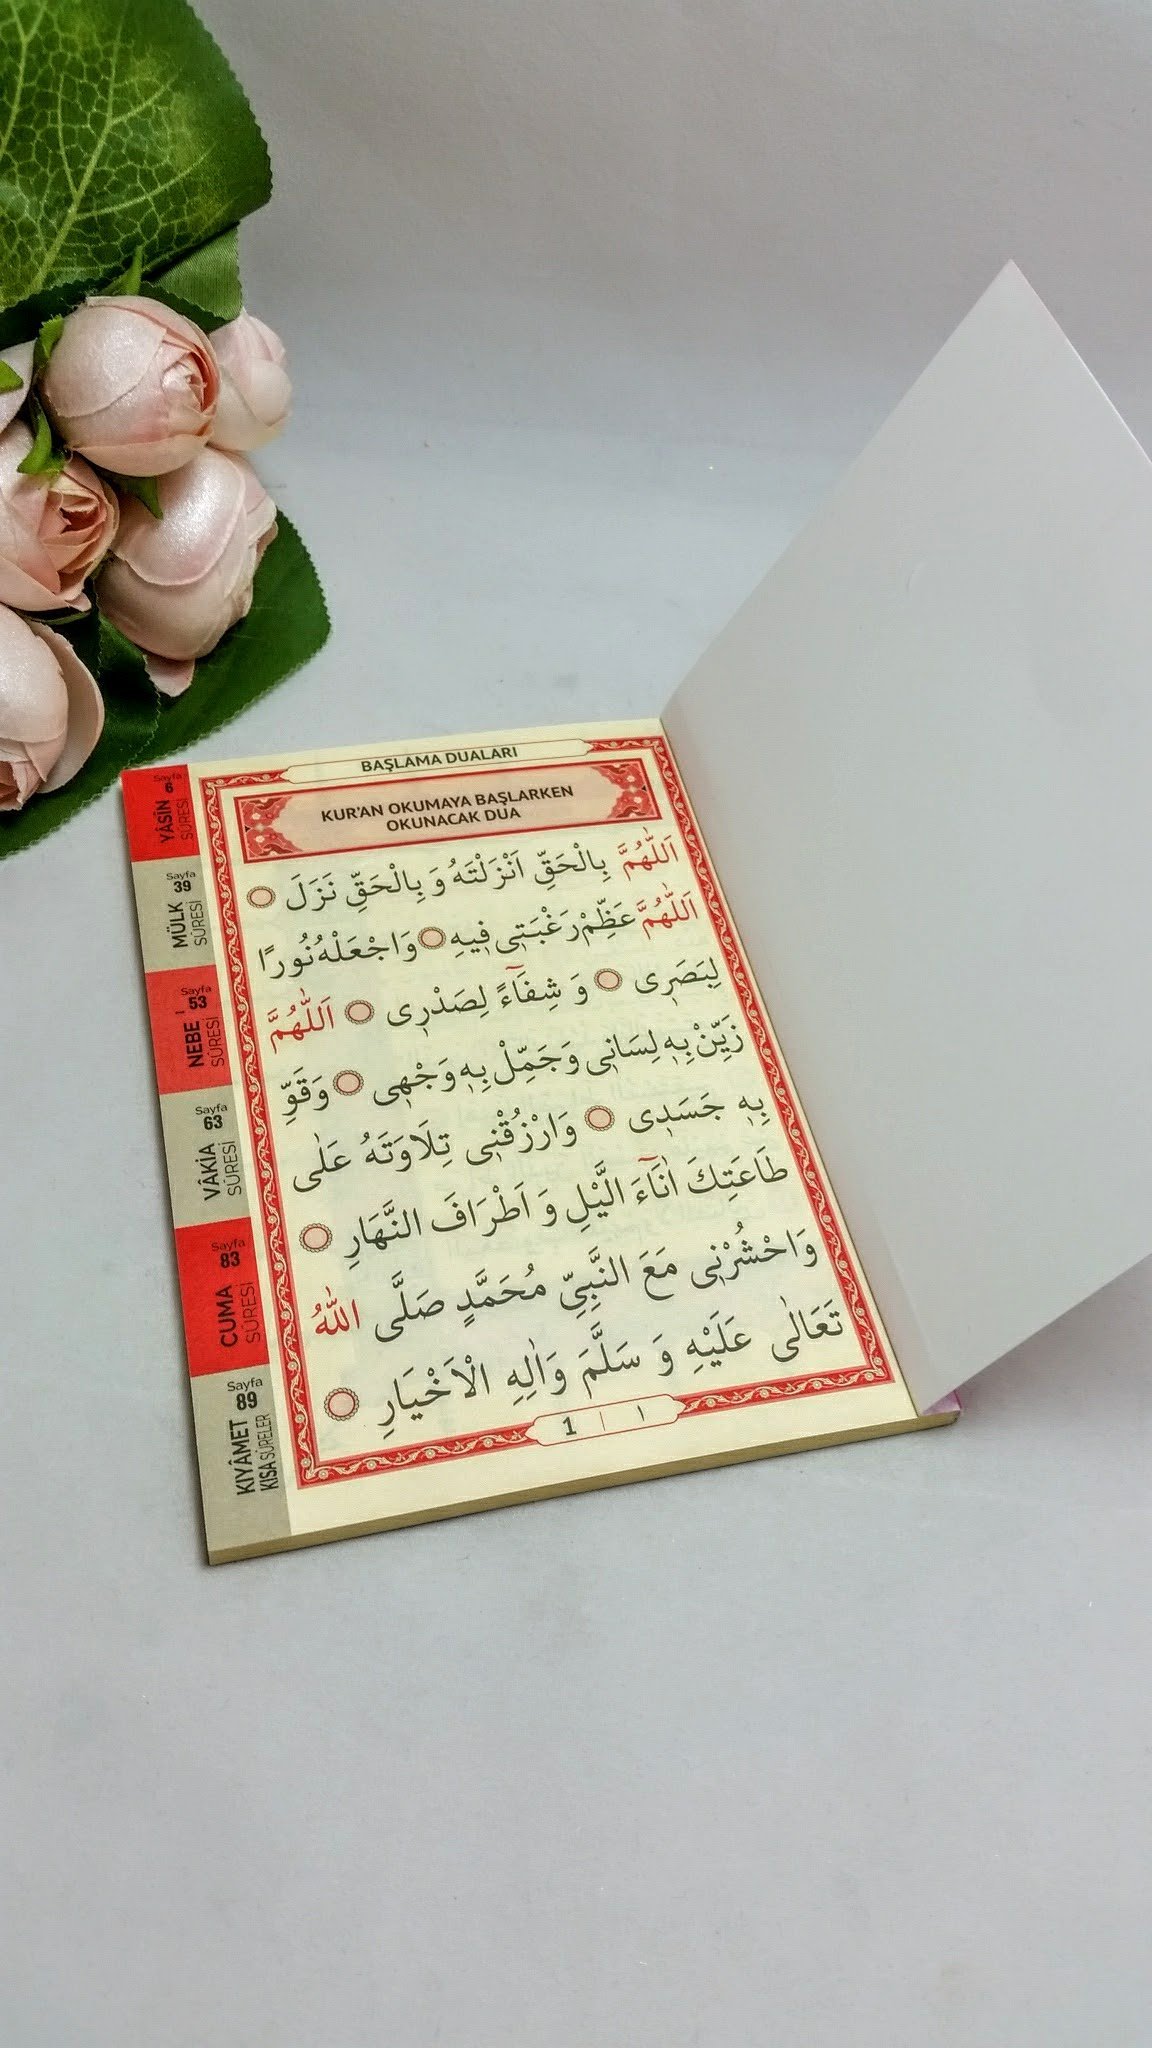 BAŞLAMA DUALARI
KUR'AN OKUMAYA BAŞLARKEN
OKUNACAK DUA
اَللّٰهُمَّ بِالْحَقِّ اَنْزَلْتَهُ وَ بِالْحَقِّ نَزَلَ
اَللّٰهُمَّ عَظِّمْ رَغْبَتٖى فٖيهِ وَاجْعَلْهُ نُورًا
لِبَصَرٖى وَ شِفَٓاءً لِصَدْرٖى اَللّٰهُمَّ
زَيِّنْ بِهٖ لِسَانٖى وَجَمِّلْ بِهٖ وَجْهٖى وَقَوِّ
بِهٖ جَسَدٖى وَارْزُقْنٖى تِلَاوَتَهُ عَلٰى
طَاعَتِكَ اٰنَٓاءَ الَّيْلِ وَ اَطْرَافَ النَّهَارِ
وَاحْشُرْنٖى مَعَ النَّبِيِّ مُحَمَّدٍ صَلَّى اللّٰهُ
تَعَالٰى عَلَيْهِ وَ سَلَّمَ وَاٰلِهِ الْاَخْيَارِ
1 | ١
Sayfa
6
YÂSÎN
SÛRESİ
Sayfa
39
MÜLK
SÛRESİ
Sayfa
53
NEBE
SÛRESİ
Sayfa
63
VÂKİA
SÛRESİ
Sayfa
83
CUMA
SÛRESİ
Sayfa
89
KIYÂMET
KISA SÛRELER